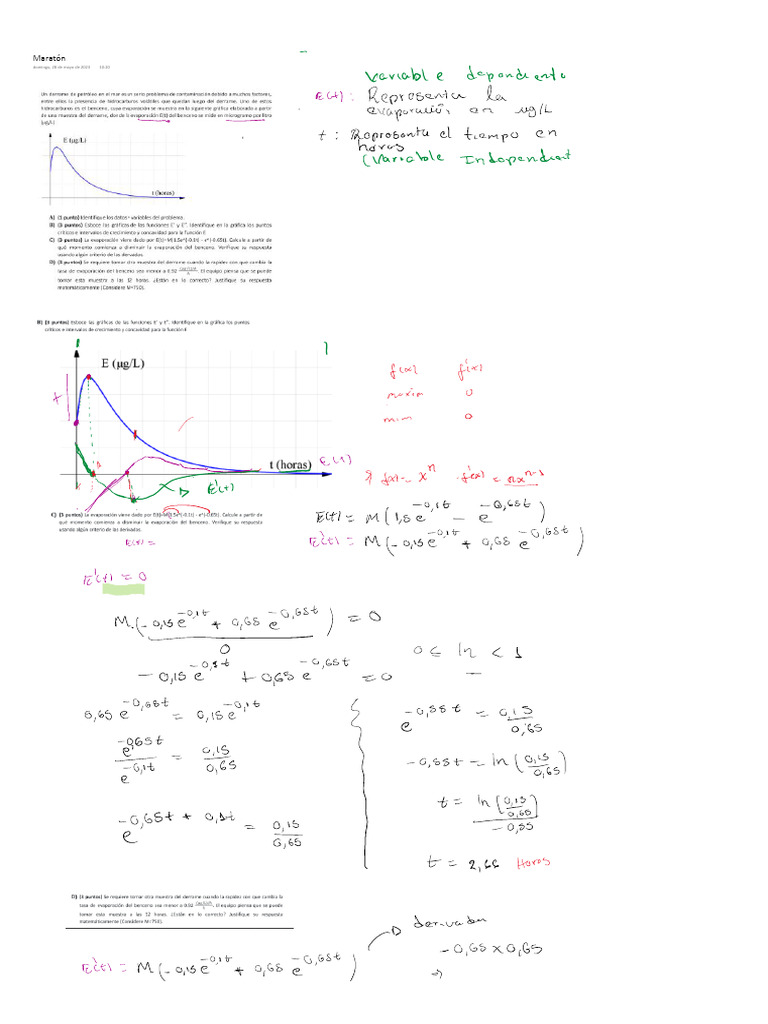 Maratón
Variable dependiente
E(t): Representa la
evaporación en ug/L
t: Representa el tiempo en
horas
(Variable Independient
Un derrame de petróleo en el mar es un serio problema de contaminación debido a muchos factores,
entre ellos la presencia de hidrocarburos volátiles que quedan luego del derrame. Uno de estos
hidrocarburos es el benceno, cuya evaporación se muestra en la siguiente gráfica elaborado a partir
de una muestra del derrame, donde la evaporación E(t) del benceno se mide en microgramo por litro
(µg/L)
E (µg/L)
t (horas)
A) (1 punto) Identifique los datos y variables del problema.
B) (3 puntos) Esboce las gráficas de las funciones E' y E''. Identifique en la gráfica los puntos
críticos e intervalos de crecimiento y concavidad para la función E
C) (3 puntos) La evaporación viene dado por E(t)=M(1.5e^(-0.1t) - e^(-0.65t). Calcule a partir de
qué momento comienza a disminuir la evaporación del benceno. Verifique su respuesta
usando algún criterio de las derivadas.
D) (3 puntos) Se requiere tomar otra muestra del derrame cuando la rapidez con que cambia la
tasa de evaporación del benceno sea menor a 0.92 . El equipo piensa que se puede
tomar esta muestra a las 12 horas. ¿Están en lo correcto? Justifique su respuesta
matemáticamente (Considere M=750).
B) (3 puntos) Esboce las gráficas de las funciones E' y E''. Identifique en la gráfica los puntos
críticos e intervalos de crecimiento y concavidad para la función E
E (µg/L)
t (horas)
E(t)
E'(t)
f(x) f'(x)
maxim 0
mim 0
f(x) = x^n f'(x) = nx^n-1
C) (3 puntos) La evaporación viene dado por E(t)=M(1.5e^(-0.1t) - e^(-0.65t). Calcule a partir de
qué momento comienza a disminuir la evaporación del benceno. Verifique su respuesta
usando algún criterio de las derivadas.
E(t) = M(1,5e^-0,1t - e^-0,65t)
E'(t) = M(-0,15e^-0,1t + 0,65 e^-0,65t)
E(t) =
E'(t) = 0
M.(-0,15e^-0,1t + 0,65 e^-0,65t) = 0
0
-0,15e^-0,1t + 0,65e^-0,65t = 0
0 ≤ ln < 1
0,65e^-0,65t = 0,15e^-0,1t
e^-0,65t / e^-0,1t = 0,15 / 0,65
e^-0,65t + 0,1t = 0,15 / 0,65
e^-0,55t = 0,15 / 0,65
-0,55t = ln(0,15 / 0,65)
t = ln(0,15 / 0,65) / -0,55
t = 2,66 Horas
D) (3 puntos) Se requiere tomar otra muestra del derrame cuando la rapidez con que cambia la
tasa de evaporación del benceno sea menor a 0.92 . El equipo piensa que se puede
tomar esta muestra a las 12 horas. ¿Están en lo correcto? Justifique su respuesta
matemáticamente (Considere M=750).
E'(t) = M(-0,15e^-0,1t + 0,65 e^-0,65t)
derivadas
-0,65 x 0,65
⇒